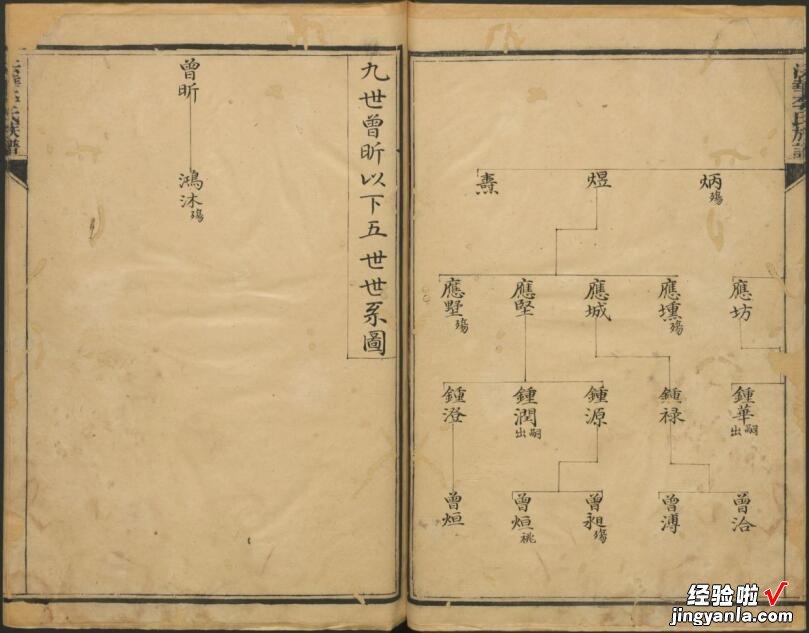 炳殤
煜
燾
應坊
應壎殤
應城
應堅
應墅殤
鍾華出嗣
鍾祿
鍾源
鍾潤出嗣
鍾澄
曾洽
曾溥
曾昶殤
曾烜祧
曾烜
九世曾昕以下五世世系圖
曾昕
鴻沐殤
氏族譜
经验啦√
jingyanla.com